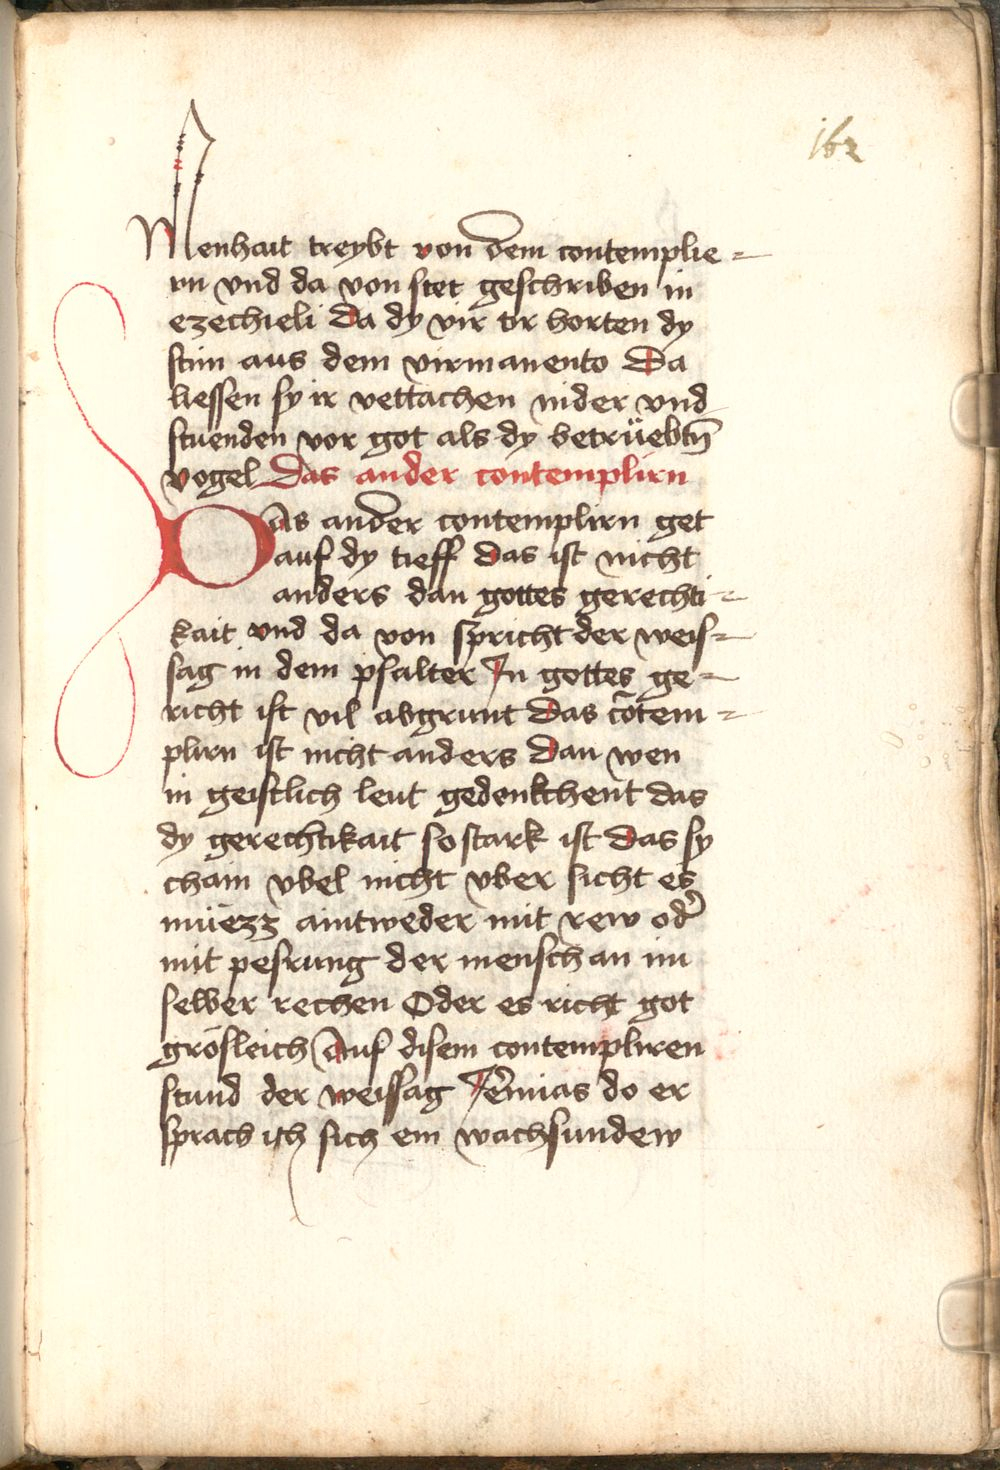 162
Menhait treybt von dem contemplie-
rn vnd da von stet geschriben in
ezechieli Da dy vir tir horten dy
stim aus dem virmanento Da
liessen sy ir vettachen nider vnd
stuenden vor got als dy betrüebtñ
vogel Das ander contemplirn
Das ander contemplirn get
auf dy tieff das ist nicht
anders dan gottes gerechti-
kait vnd da von spricht der weis-
sag in dem psalter In gottes ge-
richt ist vil abgrunt Das cōtem-
plirn ist nicht anders Dan wen
in geistlich leut gedenkchent das
dy gerechtikait so stark ist Das sy
chain vbel nicht vber sicht es
müezz aintweder mit rew od̕
mit pesrung der mensch an im
selber rechen Oder es richt got
grösleich Auf disem contempliren
stund der weissag Je̕mias do er
sprach ich sich ein wachsundew